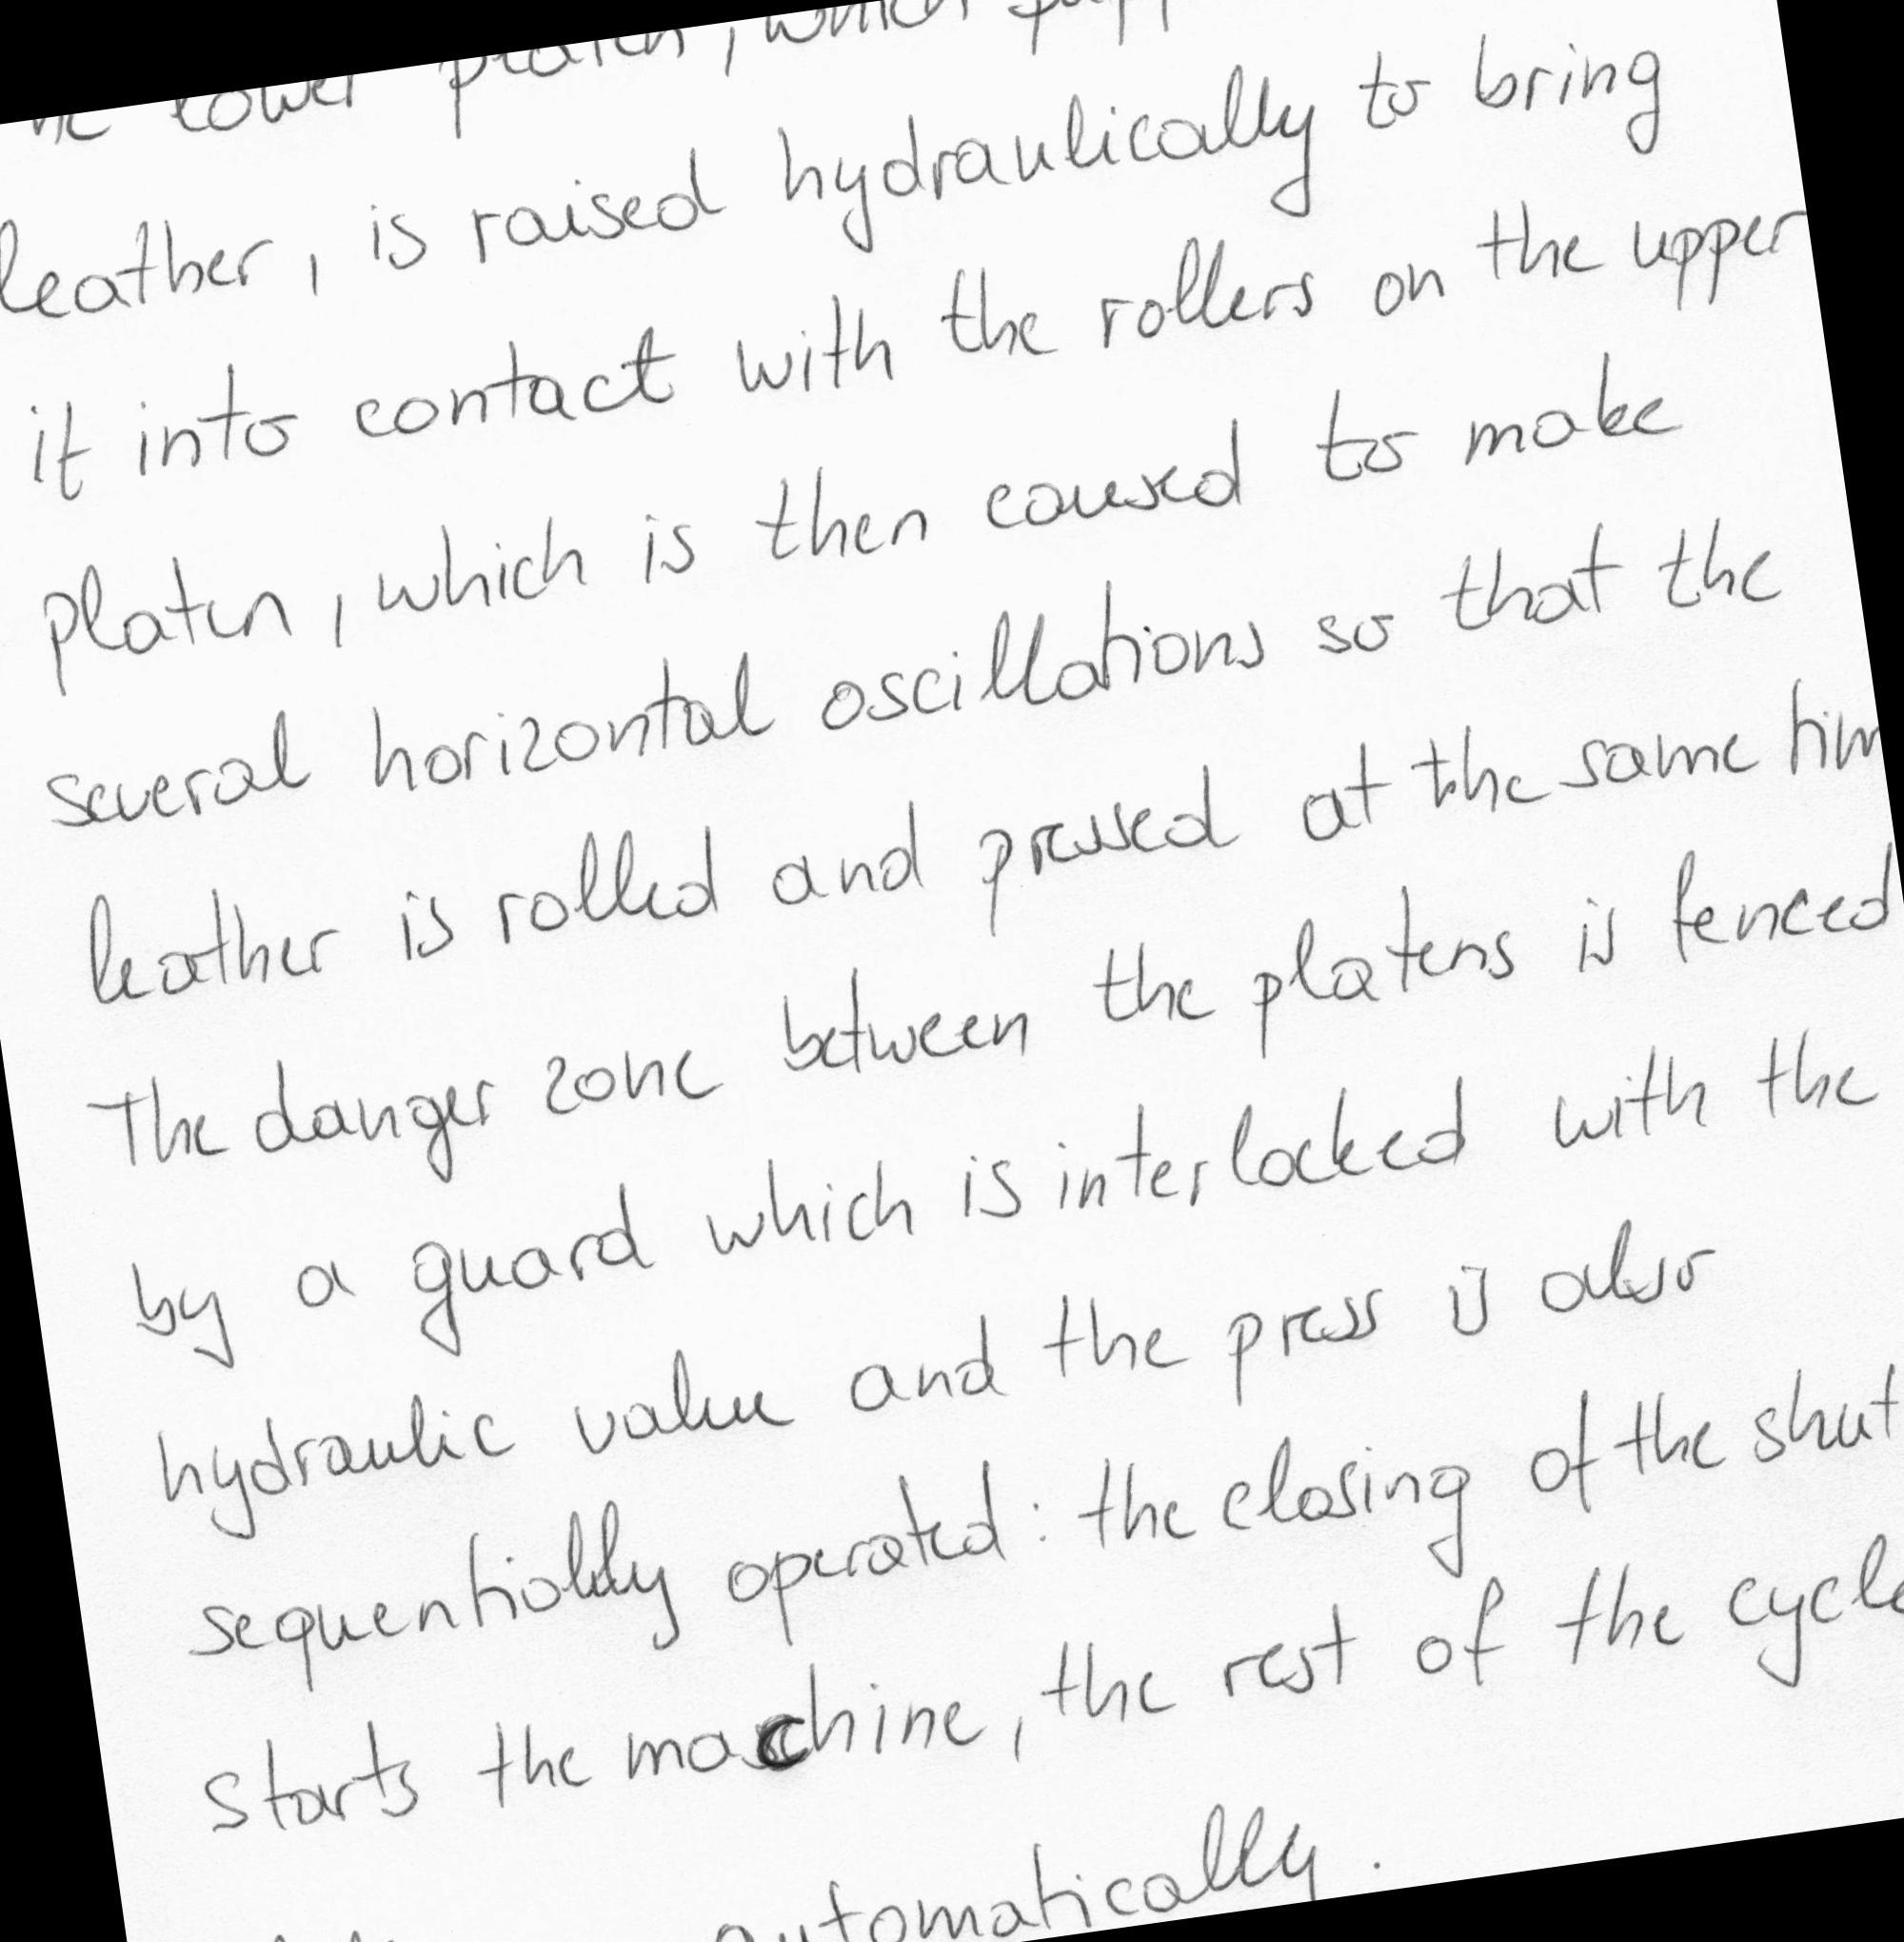 lower platen, which
leather, is raised hydraulically to bring
it into contact with the rollers on the upper
platen, which is then caused to make
several horizontal oscillations so that the
leather is rolled and pressed at the same tim
The danger zone between the platens is fenced
by a guard which is interlocked with the
hydraulic value and the press is also
sequentially operated: the closing of the shut
starts the machine, the rest of the cycle
automatically.